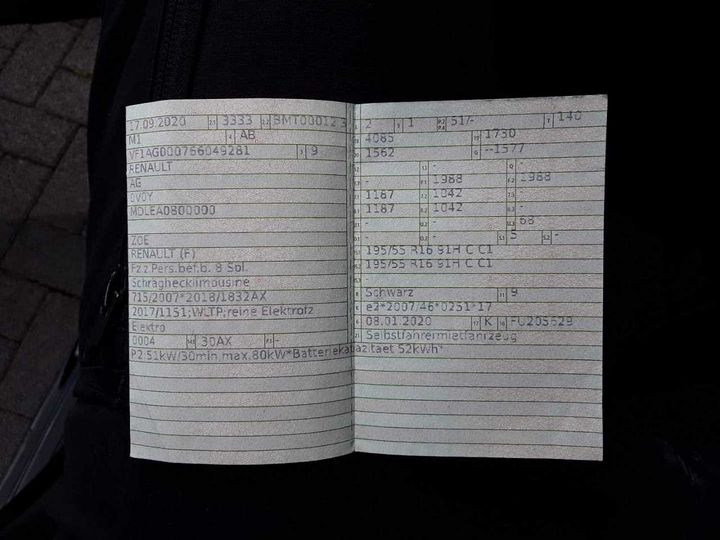 17.09.2020 2.1 3333 2.2 BMT00012 3
M1 4 AB
VF1AG000766049281 3 9
RENAULT
AG
0V0Y
MDLEA0800000
ZOE
RENAULT (F)
Fz.z.Pers.bef.b. 8 Spl.
Schräghecklimousine
715/2007*2018/1832AX
2017/1151;WLTP;reine Elektrofz
Elektro
0004 14.1 30AX P.1 -
P.2:51kW/30min.max.80kW*Batteriekapazitaet 52kWh*
2 1 P.2 P.4 51/- T 140
4085 1730
1562 G --1577
- -
- F.1 1988 F.2 1988
1187 1042 -
1187 1042 -
- - U.3 68
- - S.1 5 S.2 -
195/55 R16 91H C C1
195/55 R16 91H C C1
Schwarz 11 9
e2*2007/46*0251*17
08.01.2020 17 K 16 FU205629
Selbstfahrermietfahrzeug